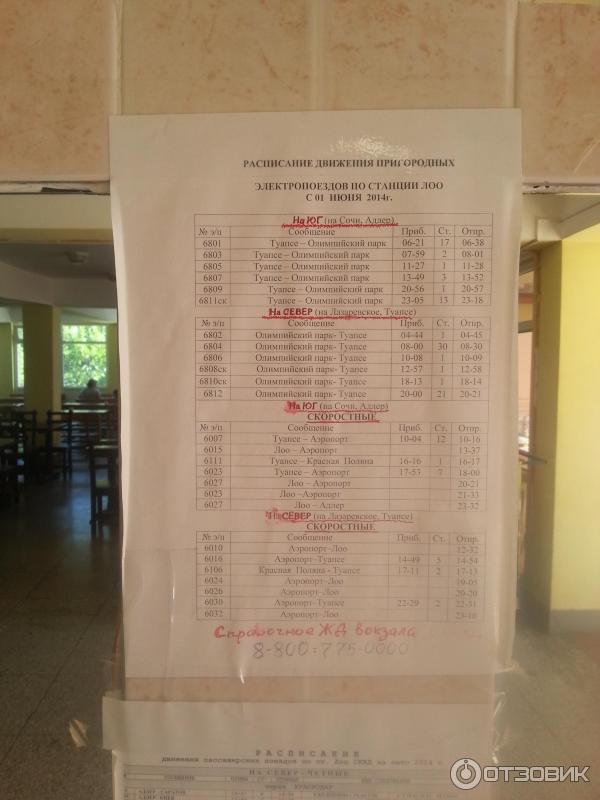 РАСПИСАНИЕ ДВИЖЕНИЯ ПРИГОРОДНЫХ
ЭЛЕКТРОПОЕЗДОВ ПО СТАНЦИИ ЛОО
С 01 ИЮНЯ 2014г.
На ЮГ (на Сочи, Адлер)
№ э/п Сообщение Приб. Ст. Отпр.
6801 Туапсе – Олимпийский парк 06-21 17 06-38
6803 Туапсе – Олимпийский парк 07-59 2 08-01
6805 Туапсе – Олимпийский парк 11-27 1 11-28
6807 Туапсе – Олимпийский парк 13-49 3 13-52
6809 Туапсе – Олимпийский парк 20-56 1 20-57
6811ск Туапсе – Олимпийский парк 23-05 13 23-18
На СЕВЕР (на Лазаревское, Туапсе)
№ э/п Сообщение Приб. Ст. Отпр.
6802 Олимпийский парк- Туапсе 04-44 1 04-45
6804 Олимпийский парк- Туапсе 08-00 30 08-30
6806 Олимпийский парк- Туапсе 10-08 1 10-09
6808ск Олимпийский парк- Туапсе 12-57 1 12-58
6810ск Олимпийский парк- Туапсе 18-13 1 18-14
6812 Олимпийский парк- Туапсе 20-00 21 20-21
На ЮГ (на Сочи, Адлер)
СКОРОСТНЫЕ
№ э/п Сообщение Приб. Ст. Отпр.
6007 Туапсе – Аэропорт 10-04 12 10-16
6015 Лоо – Аэропорт 13-37
6111 Туапсе – Красная Поляна 16-16 1 16-17
6023 Туапсе – Аэропорт 17-53 7 18-00
6027 Лоо – Аэропорт 20-21
6023 Лоо –Аэропорт 21-33
6027 Лоо – Адлер 23-32
На СЕВЕР (на Лазаревское, Туапсе)
СКОРОСТНЫЕ
№ э/п Сообщение Приб. Ст. Отпр.
6010 Аэропорт–Лоо 12-32
6016 Аэропорт–Туапсе 14-49 5 14-54
6106 Красная Поляна - Туапсе 17-11 2 17-13
6024 Аэропорт–Лоо 19-05
6026 Аэропорт–Лоо 20-20
6030 Аэропорт–Туапсе 22-29 2 22-31
6032 Аэропорт–Лоо 23-10
Справочное ЖД вокзала
8-800-775-0000
РАСПИСАНИЕ
движения пассажирских поездов по ст. Лоо СКЖД на лето 2014 г.
НА СЕВЕР-ЧЕТНЫЕ
ОТЗОВИК